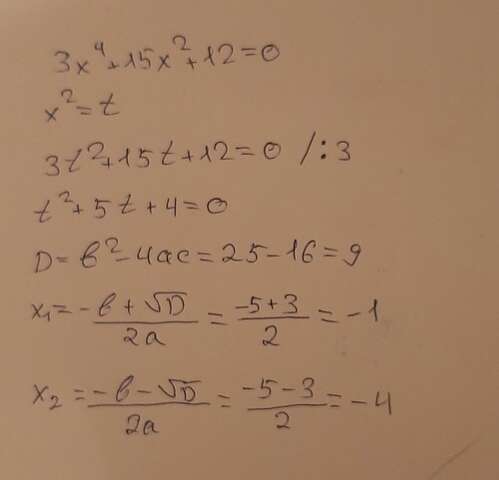 3x⁴+15x²+12=0
x²=t
3t²+15t+12=0 /:3
t²+5t+4=0
D=b²-4ac=25-16=9
x₁=-b+√D/2a=-5+3/2=-1
x₂=-b-√D/2a=-5-3/2=-4